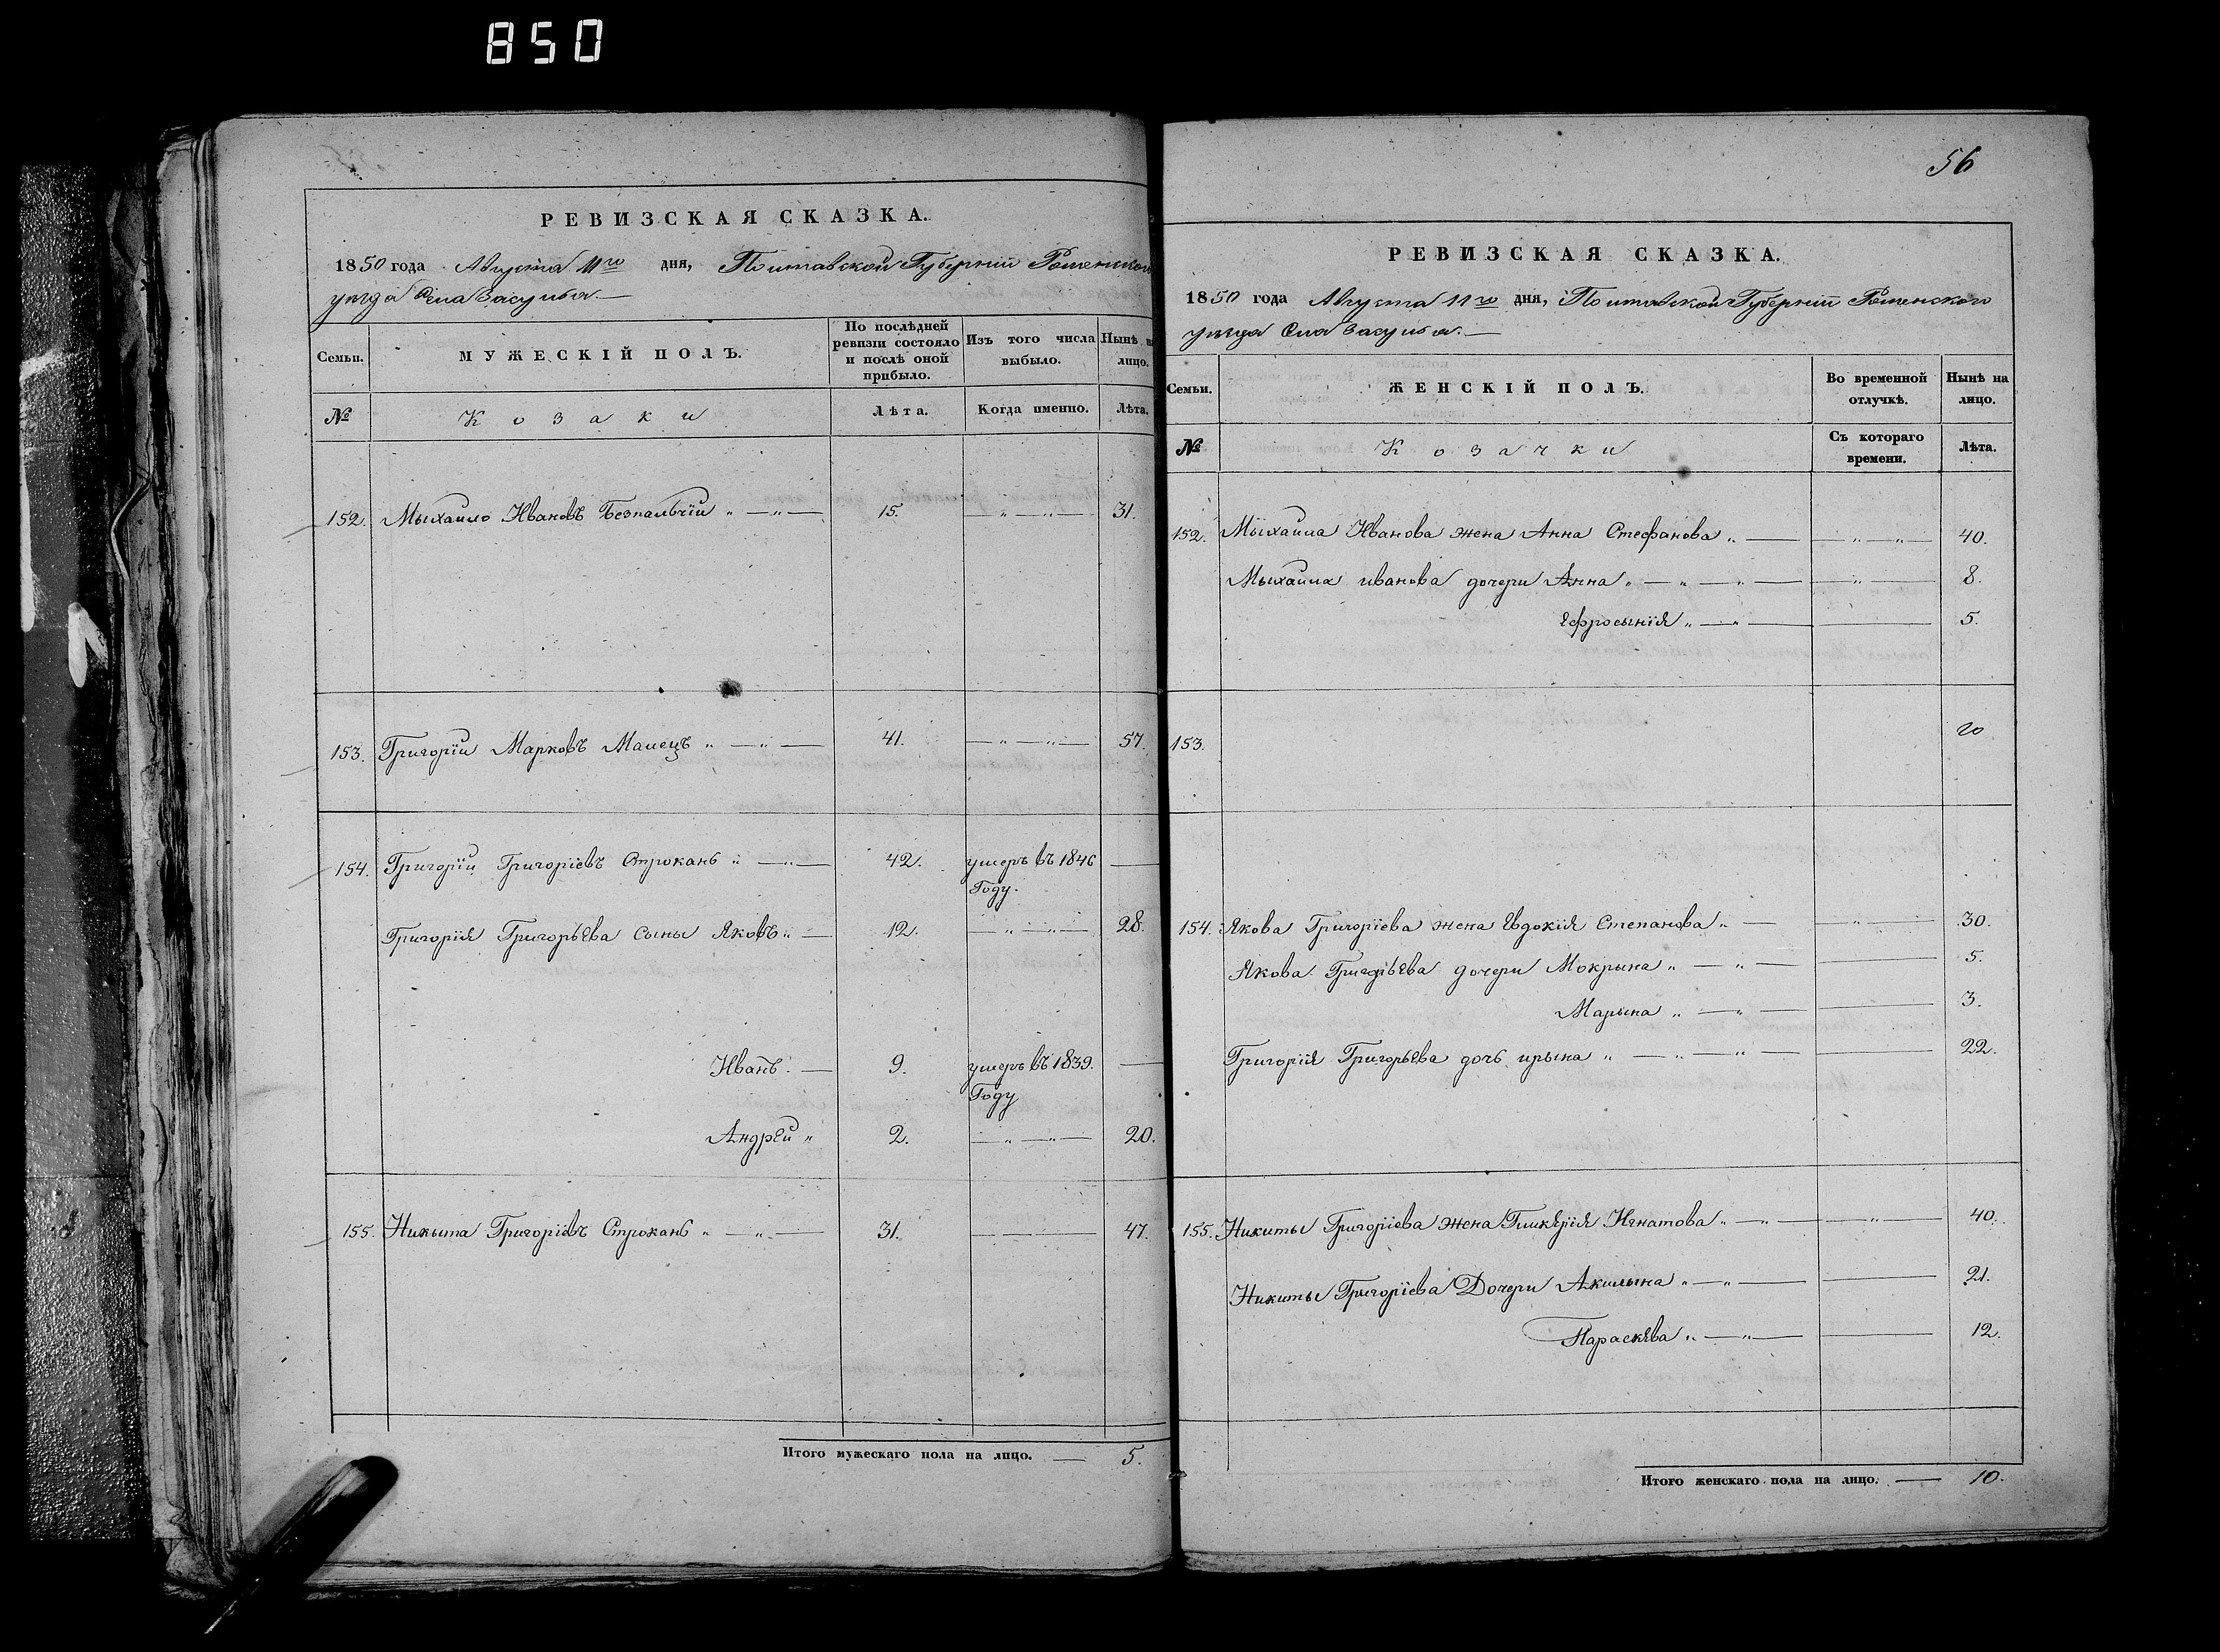 850
РЕВИЗСКАЯ СКАЗКА.
1850 года Августа 11го дня, Полтавской Губерніи Роменского
уезда Села Засулья.
Семьи. МУЖЕСКІЙ ПОЛЪ. По послѣдней ревизіи состояло и послѣ оной прибыло. Изъ того числа выбыло. Нынѣ на лицо.
№ Козаки Лѣта. Когда именно. Лѣта.
152. Мыхайло Ивановъ Безпальчій 15. 31.
153. Григорій Марковъ 41. 57.
154. Григорій Григоріевъ Строкань 42. умеръ въ 1846
Году.
Григорія Григорьева сыны Яковъ 12. 28.
Иванъ. 9. умеръ въ 1839.
Году
Андрей 2. 20.
155. Никыта Григоріевъ Строкань 31. 47.
Итого мужескаго пола на лицо. 5.
56
РЕВИЗСКАЯ СКАЗКА.
1850 года Августа 11го дня, Полтавской Губерніи Роменского
уезда Села Засулья.
Семьи. ЖЕНСКІЙ ПОЛЪ. Во временной отлучкѣ. Нынѣ на лицо.
№ Козачки Съ котораго времени. Лѣта.
152. Мыхайла Иванова жена Анна Стефанова 40.
Мыхайла иванова дочери Анна 8.
Ефросынія 5.
153.
154. Якова Григоріева жена Евдокія Степанова 30.
Якова дочери Мокрына 5.
Марына 3.
Григорія Григорьева дочь ирына 22.
155. Никиты Григоріева жена Гликерія Игнатова 40.
Никиты Григоріева Дочери Акилына 21.
Параскева 12.
Итого женскаго пола на лицо. 10.